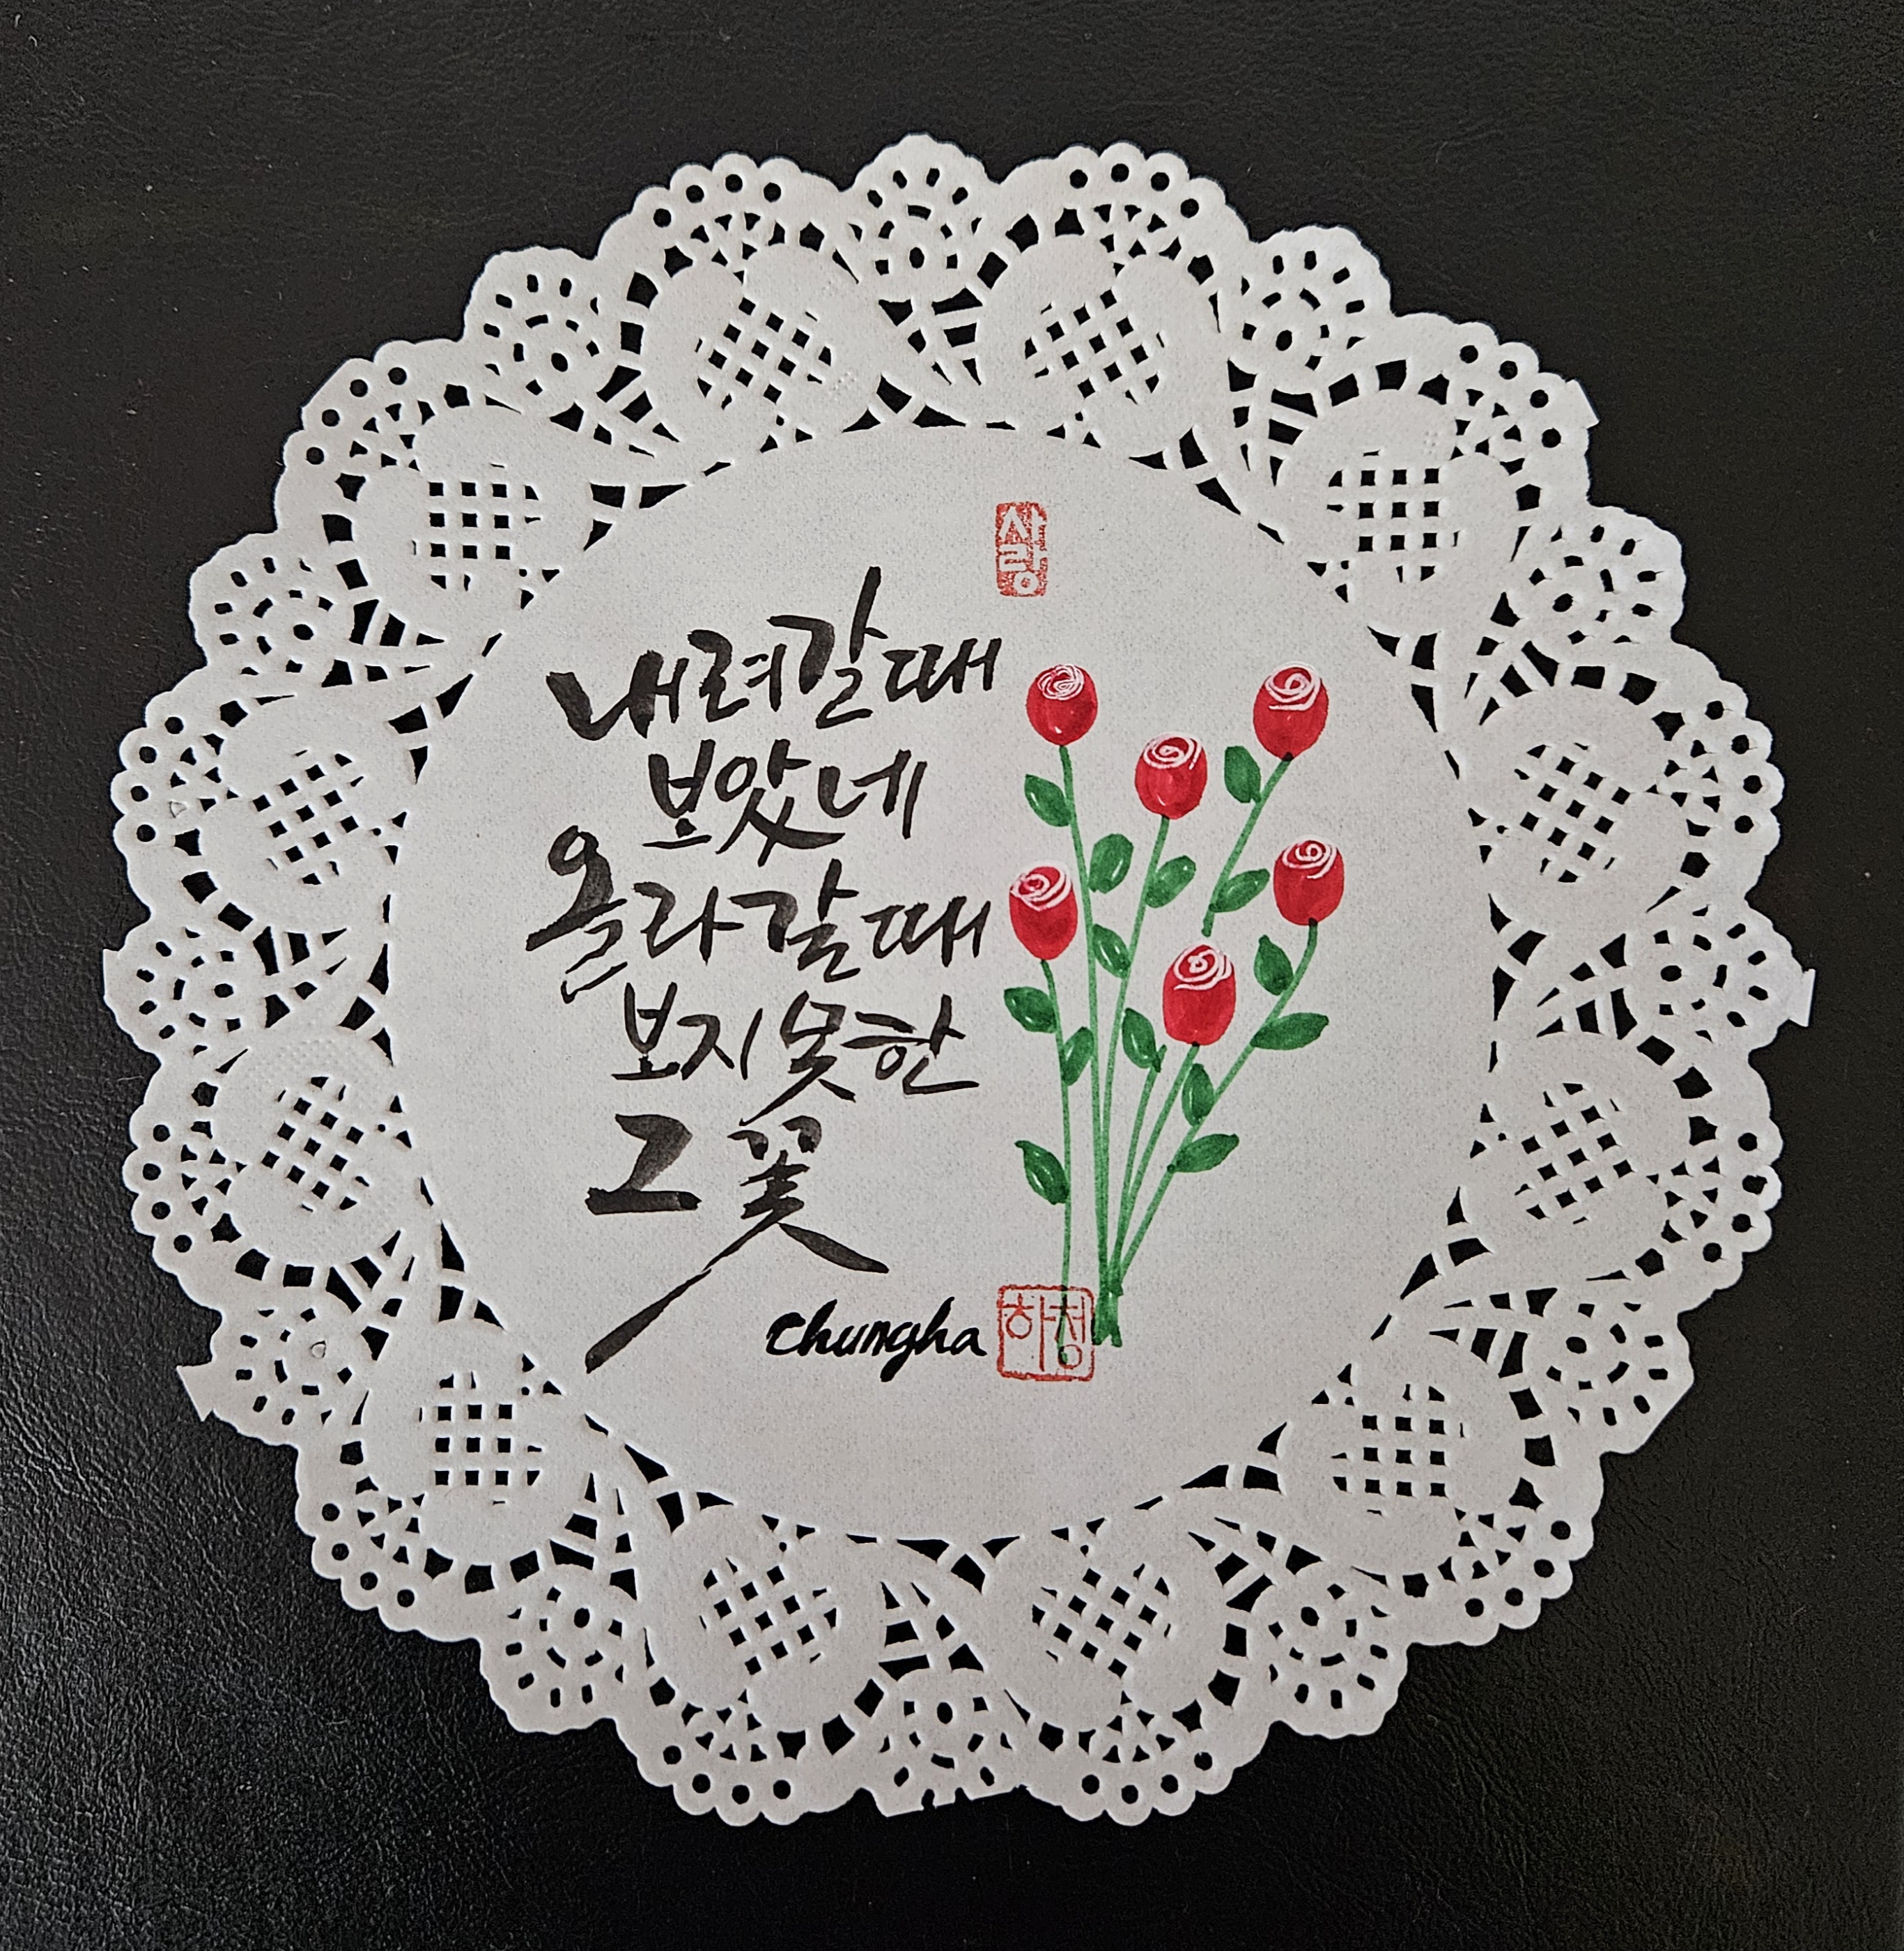 사랑
내려갈때
보았네
올라갈때
보지못한
그꽃
Chungha
하청